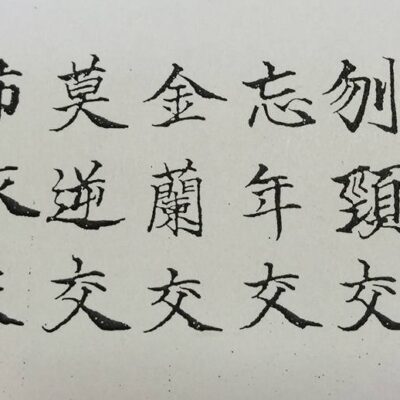 刎頸交
忘年交
金蘭交
莫逆交